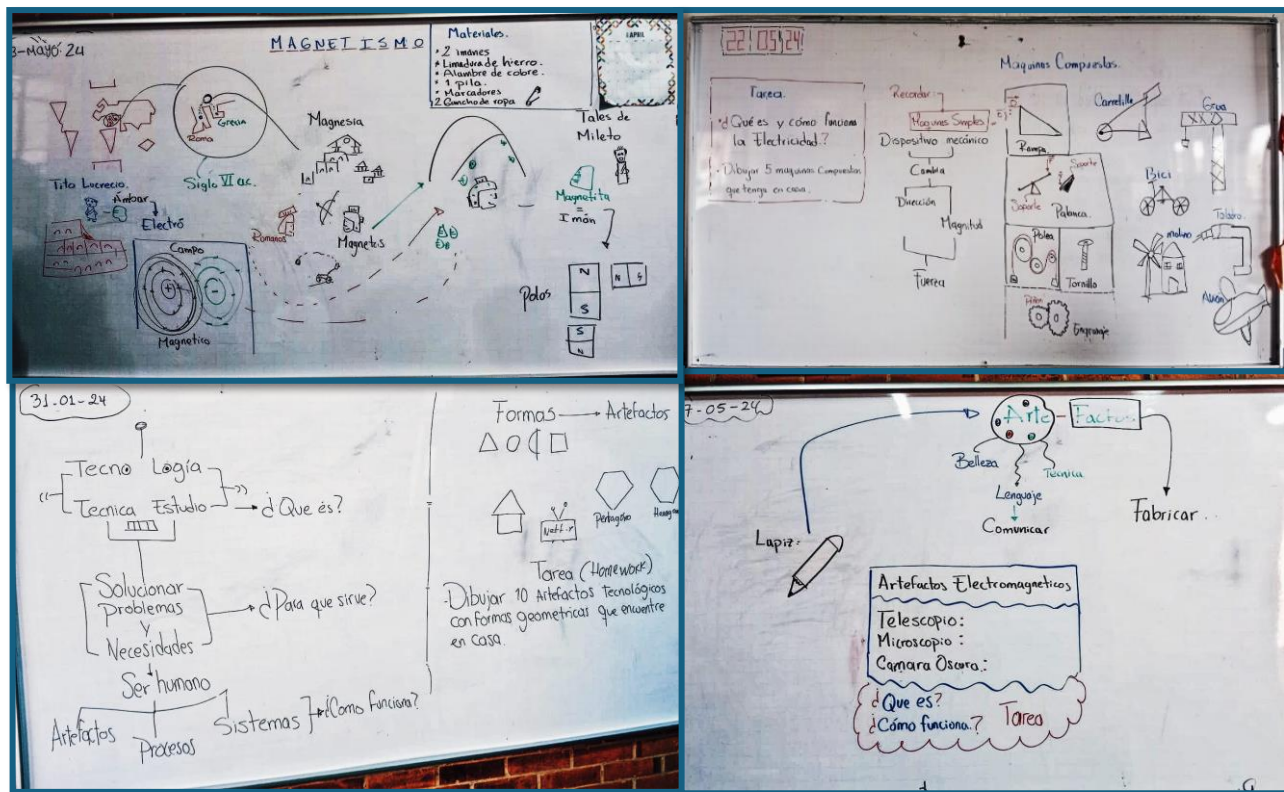 3-MAYO-24
MAGNETISMO
Materiales.
• 2 imánes
• Limadura de hierro.
• Alambre de cobre.
• 1 pila.
• Marcadores
2 Gancho de ropa
Grecia
Roma
Siglo VI a.c.
Magnesia
Tales de
Mileto
Tito Lucrecio.
Ámbar
Electró
Romanos
Magnetis
Magnetita
=
Imán
Campo
Magnetico
Polos
N
S
N S
S
N
22 05 24
Maquinas Compuestas.
Tarea.
• ¿Qué es y cómo funciona
la Electricidad?
- Dibujar 5 maquinas Compuestas
que tenga en casa.
Recordar:
Maquinas Simples
Dispositivo mecánico
Cambia
Dirección
Magnitud
Fuerza
Rampa
Soporte
Soporte
Palanca
Polea
Tornillo
Engranaje
Carretilla
Grua
Bici
Taladro
molino
Avión
31-01-24
Tecno Logía
Tecnica Estudio
¿Que és?
Solucionar
Problemas
y
Necesidades
¿Para que sirve?
Ser humano
Artefactos
Procesos
Sistemas
¿Como funciona?
Formas → Artefactos
Pentagono
Tarea (Homework)
-Dibujar 10 Artefactos tecnológicos
con formas geometricas que encuentre
en casa.
7-05-24
Arte - Factos
Belleza
Tecnica
Lenguaje
Comunicar
Fabricar..
Lapiz:
Artefactos Electromagneticos
Telescopio:
Microscopio:
Camara Oscura:
¿Que es?
¿Cómo funciona.?
Tarea